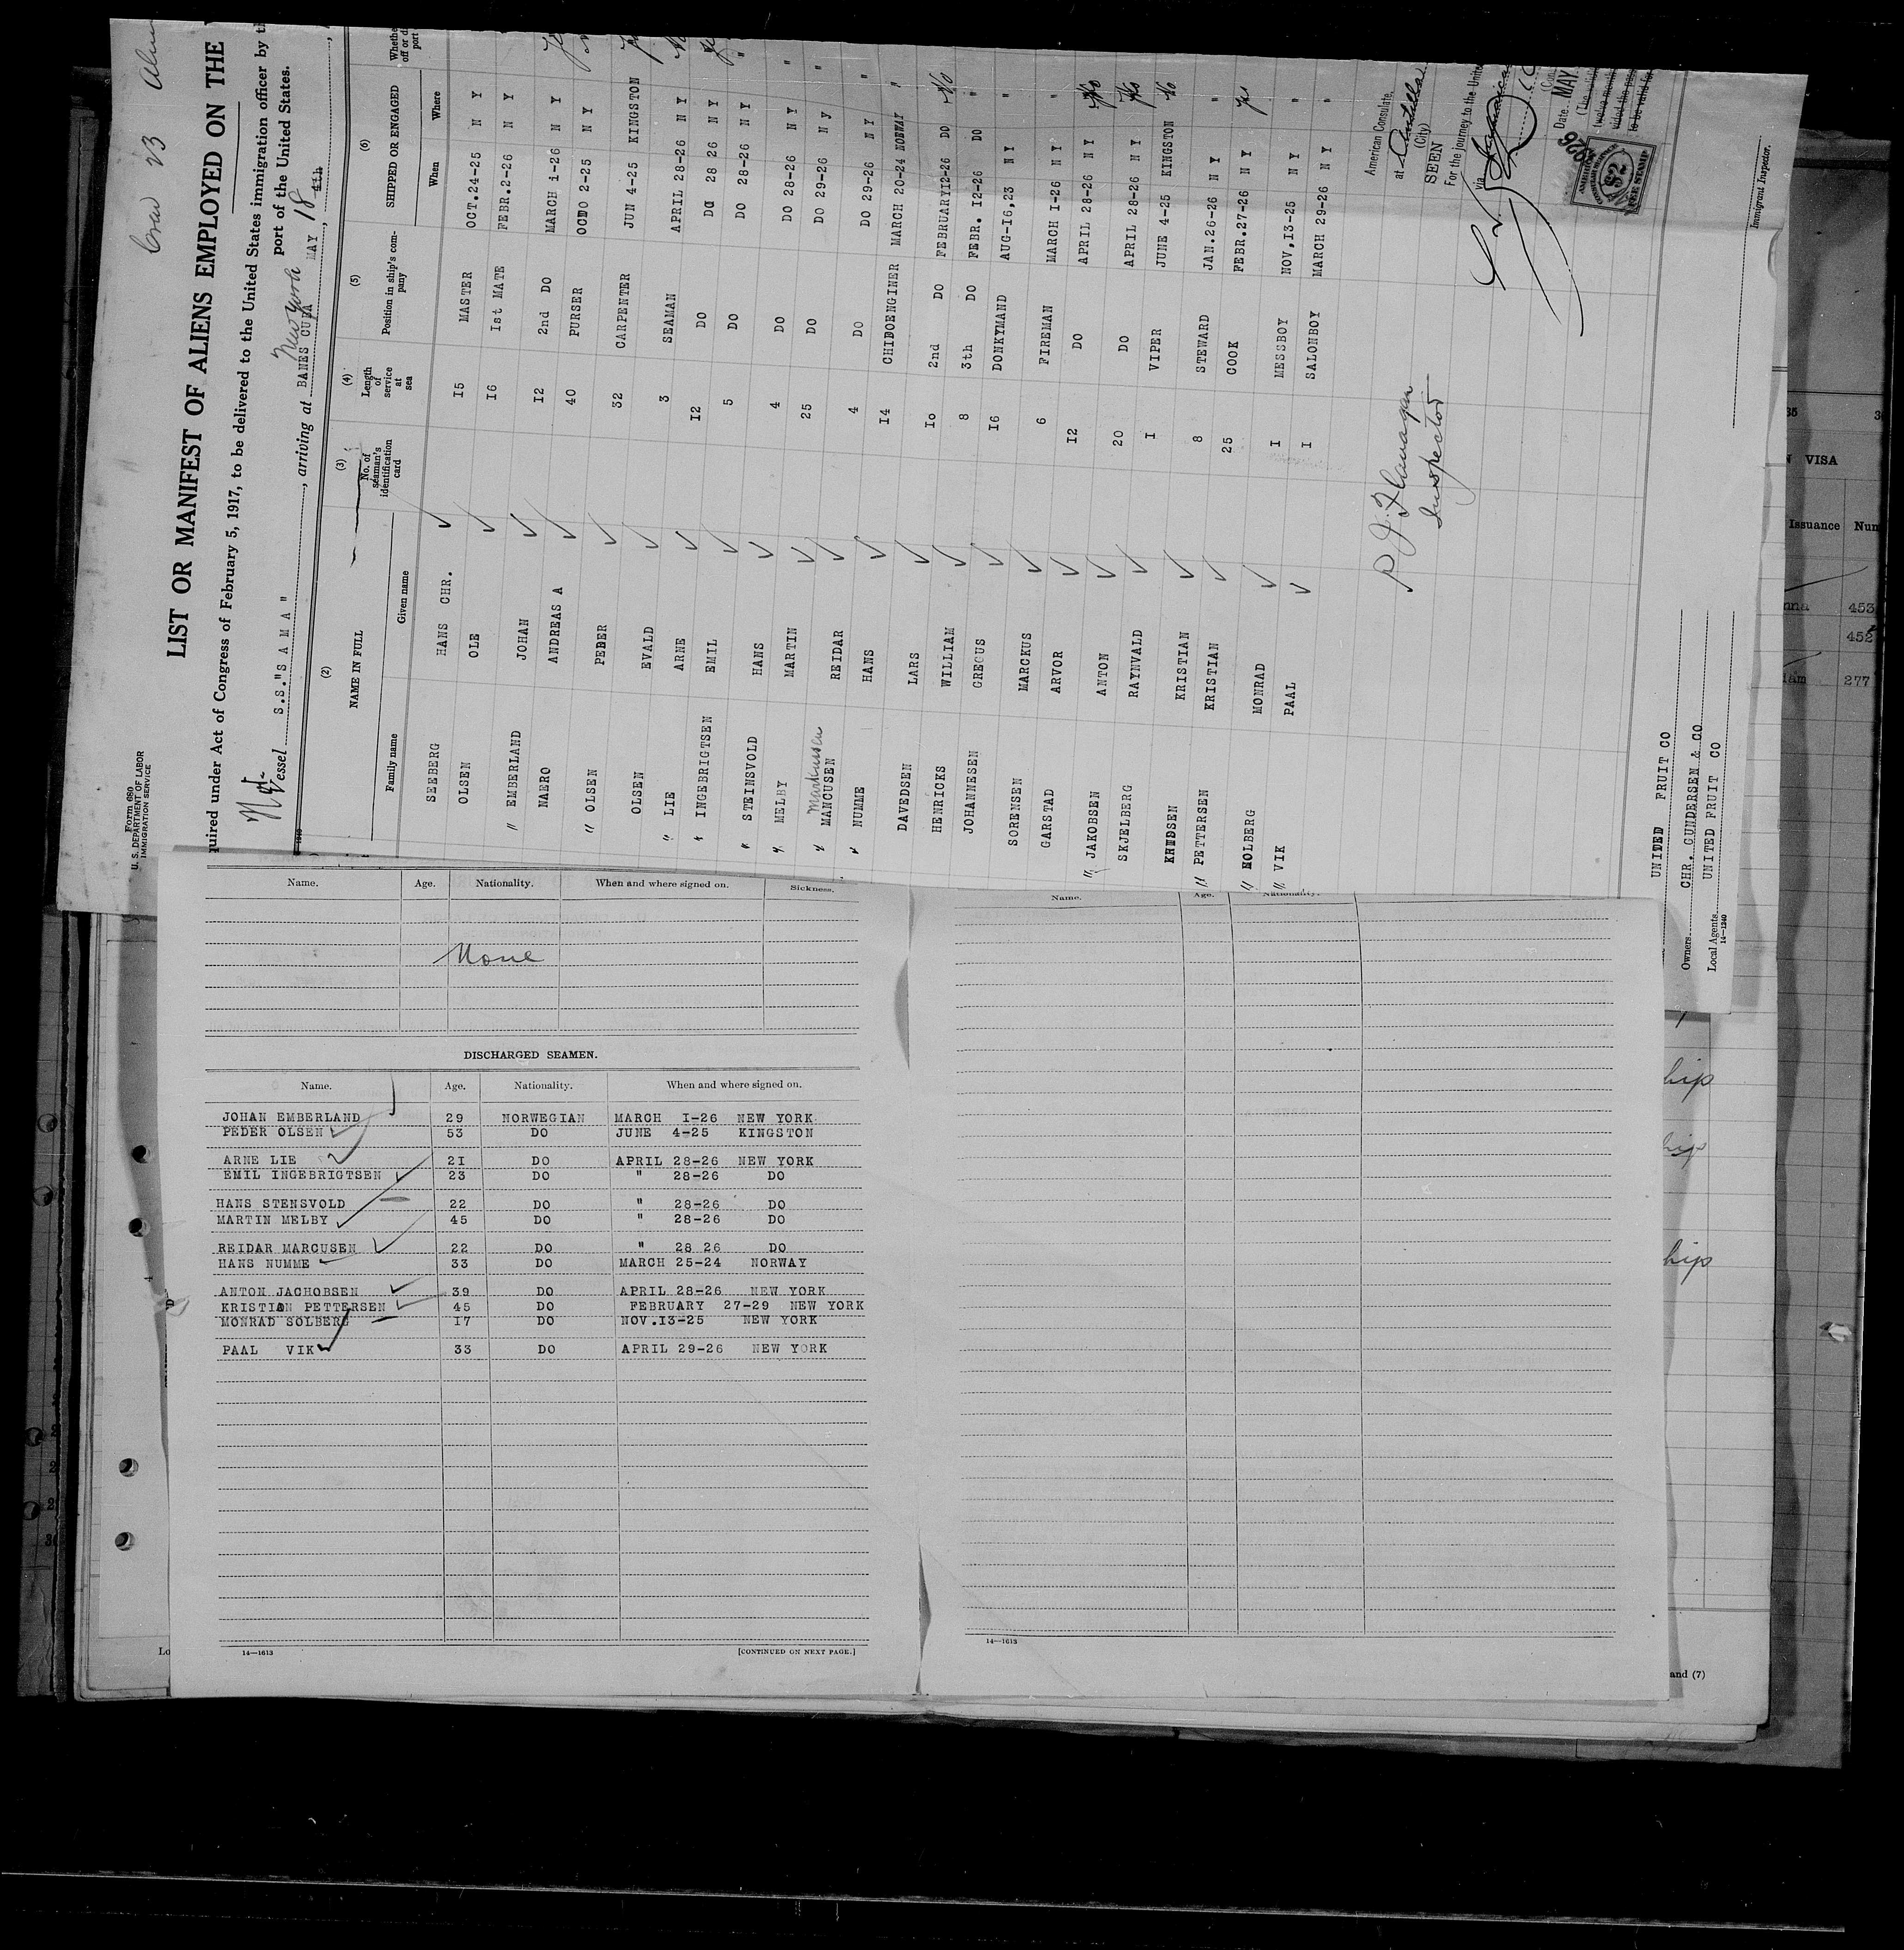 Crew 23
Form 680
U. S. DEPARTMENT OF LABOR
IMMIGRATION SERVICE
LIST OR MANIFEST OF ALIENS EMPLOYED ON THE
quired under Act of Congress of February 5, 1917, to be delivered to the United States immigration officer by th
port of the United States.
Vessel S.S."S A M A", arriving at BANES CUBA New York MAY 18, 4th
(2) (3) (4) (5) (6)
NAME IN FULL No. of seaman's identification card Length of service at sea Position in ship's company SHIPPED OR ENGAGED
Family name Given name When Where
SEEBERG HANS CHR. 15 MASTER OCT.24-25 N Y
OLSEN OLE 16 1st MATE FEBR.2-26 N Y
" EMBERLAND JOHAN 12 2nd DO MARCH 1-26 N Y
NAERO ANDREAS A 40 PURSER 2-25 N Y
" OLSEN PEDER 32 CARPENTER JUN 4-25 KINGSTON
OLSEN EVALD 3 SEAMAN APRIL 28-26 N Y
" LIE ARNE 12 DO DO 28 26 N Y
" INGEBRIGTSEN EMIL 5 DO DO 28-26 N Y
" STEINSVOLD HANS 4 DO DO 28-26 N Y
MELBY MARTIN 25 DO DO 29-26 N Y
Markussen
MANCUSEN REIDAR 4 DO DO 29-26 N Y
NUMME HANS 14 CHIDOENGINER MARCH 20-24 NORWAY
DAVEDSEN LARS 10 2nd DO FEBRUARY12-26 DO No
HENRICKS WILLIAM 8 3th DO FEBR. 12-26 DO "
JOHANNESEN GREGUS 16 DONKYMAND AUG-16,23 N Y "
SORENSEN MARCKUS 6 FIREMAN MARCH 1-26 N Y "
GARSTAD ARVOR 12 DO APRIL 28-26 N Y
" JAKOBSEN ANTON 20 DO APRIL 28-26 N Y
SKJELBERG RAYNVALD 1 VIPER JUNE 4-25 KINGSTON No
KNUDSEN KRISTIAN 8 STEWARD JAN.26-26 N Y "
" PETTERSEN KRISTIAN 25 COOK FEBR.27-26 N Y yes
" HOLBERG MONRAD 1 MESSBOY NOV,13-25 N Y "
" VIK PAAL 1 SALONBOY MARCH 29-26 N Y "
P J. Flanagan
Inspector
American Consulate,
at Antilla
(City)
SEEN
For the journey to the Unite
via
Date MAY
1926
AMERICAN
$2
FEE STAMP
Immigrant Inspector.
UNITED FRUIT CO
Owners CHR. GUNDERSEN & CO
Local Agents UNITED FRUIT CO
14—1240
Name. Age. Nationality. When and where signed on. Sickness.
None
DISCHARGED SEAMEN.
Name. Age. Nationality. When and where signed on.
JOHAN EMBERLAND 29 NORWEGIAN MARCH I-26 NEW YORK
PEDER OLSEN 53 DO JUNE 4-25 KINGSTON
ARNE LIE 2I DO APRIL 28-26 NEW YORK
EMIL INGEBRIGTSEN 23 DO " 28-26 DO
HANS STENSVOLD 22 DO " 28-26 DO
MARTIN MELBY 45 DO " 28-26 DO
REIDAR MARCUSEN 22 DO " 28 26 DO
HANS NUMME 33 DO MARCH 25-24 NORWAY
ANTON JACHOBSEN 39 DO APRIL 28-26 NEW YORK
KRISTIAN PETTERSEN 45 DO FEBRUARY 27-29 NEW YORK
MONRAD SOLBERG I7 DO NOV.I3-25 NEW YORK
PAAL VIK 33 DO APRIL 29-26 NEW YORK
14—1613 [CONTINUED ON NEXT PAGE.]
Name. Age. Nationality.
14—1613
VISA
Issuance Num
nna 453
452
iam 277
hip
hip
hip
and (7)